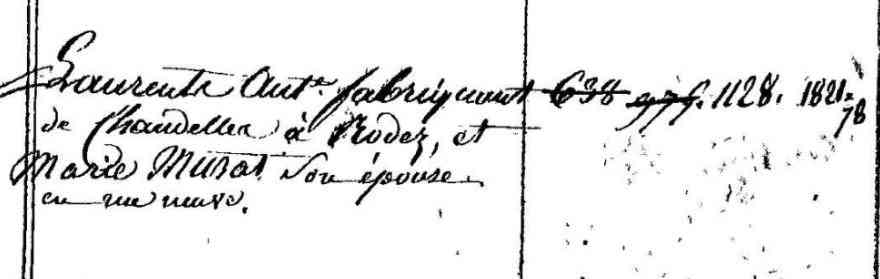 Laurens Ant.ne fabriquant 638 975. 1128. 1821-78
de Chandelles à Rodez, et
Marie Murat son épouse
en rue neuve.